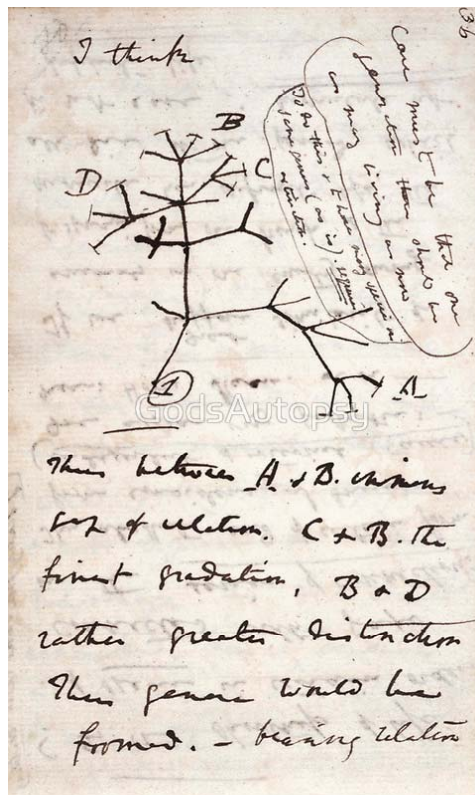 36
I think
Case must be that one
generation then should be
as many living as now
To do this & to have many species in
same genus (as is). requires
extinction.
B
C
D
A
1
GodsAutopsy
Thus between A & B. immens
gap of relation. C & B. the
finest gradation, B & D
rather greater distinction
Thus genera would be
formed. — bearing relation